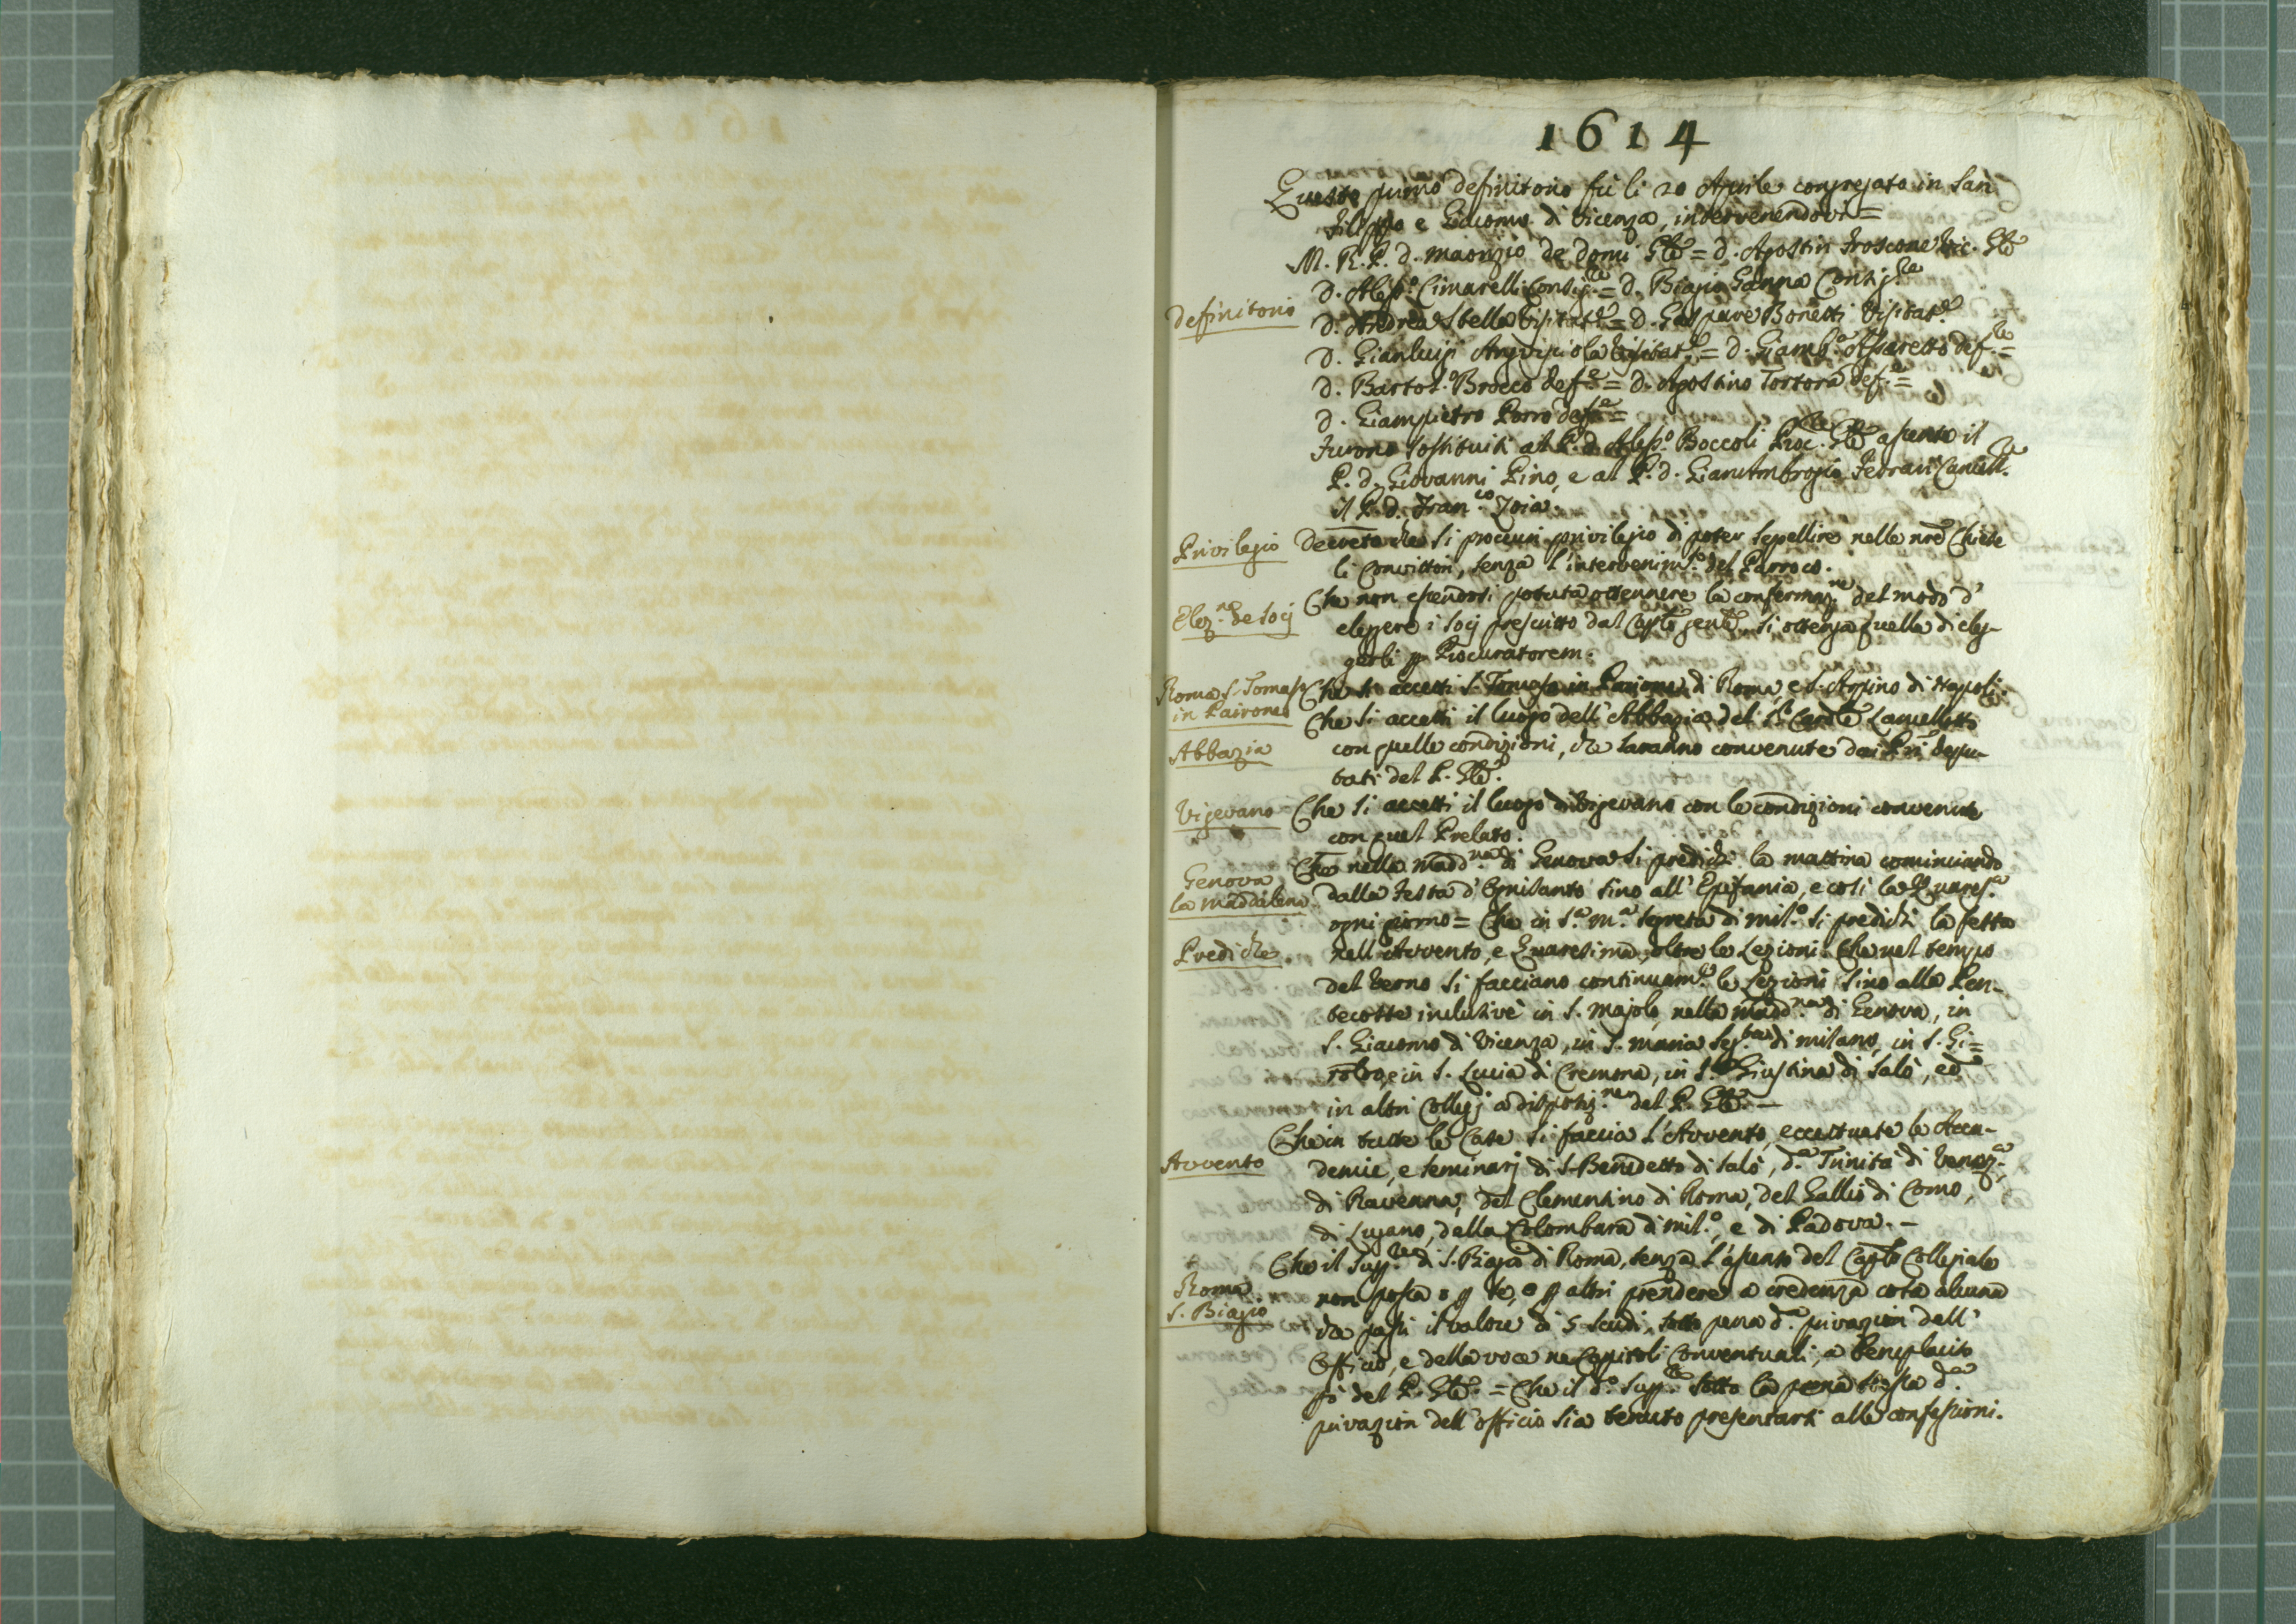 1614
Questo primo definitorio fù li 20 Aprile congregato in San
Filippo e Giacomo di Vicenza, intervenendovi =
M. R. P. d. Maurizio de Domi Gle = d. Agostin Froscone Vic. Gle
Definitorio
d. Aless.o Cimarelli Consig.re = d. Biagio Ganna Consig.re
d. Andrea Stella Visitat.e = d. Gaspare Bonetti Visitat.e
d. Gianluigi Arvigiola Visitat.e = d. Giamb.a Assaretto def.re =
d. Bartol.o Brocco def.e = d. Agostino Tortora def.e =
d. Giampietro Porro def.e =
Furono sostituiti al P. d. Aless.o Boccoli Proc.re Gle assente il
P. d. Giovanni Pino, e al P. d. Gianambrogio Fedrari Cancell.re
il P. d. Fran.co Zoia.
Privilegio
Decreto che si procuri privilegio di poter sepellire nelle nre Chiese
li Convittori, senza l'intervenim.to del Parroco.
Elez.ne de Socij
Che non essendosi potuta ottennere la confermaz.ne del modo d'
eleggere i Socij prescritto dal Caplo genle, si ottenga quella di eleg-
gerli p Procuratorem.
Roma S. Tomaso
in Pairone
Che si accetti S. Tomaso in Parione di Roma, e S. Aspino di Napoli.
Che si accetti il luogo dell'Abbazia del S.r Cardle Lancellotto
Abbazia
con quelle condizioni, che saranno convenute dai Pri depu-
tati del P. Gle.
Vigevano
Che si accetti il luogo di Vigevano con le condizioni convenute
con quel Prelato.
Genova
la Maddalena
Che nella Madd.na di Genova si predichi la mattina cominciando
dalla Festa d'Ognisanto sino all'Epifania, e così la Quares.a
ogni giorno = Che in S.a M.a Segreta di Mil.o si predichi la festa
Prediche
nell'Avvento, e Quaresima, oltre le Lezioni. Che nel tempo
del Verno si facciano continuam.te le Lezioni sino alla Pen-
tecoste inclusive in S. Majolo, nella Madd.na di Genova, in
S. Giacomo di Vicenza, in S. Maria Seg.ta di Milano, in S. Gi=
roldo, e in S. Lucia di Cremona, in S. Giustina di Salò, ed
in altri Collegj a disposiz.ne del P. Gle. -
Avvento
Che in tutte le Case si faccia l'Avvento, eccettuate le Acca-
demie, e Seminarj di S. Benedetto di Salò, d.a Trinita di Venez.a,
di Ravenna, del Clementino di Roma, del Gallio di Como,
di Lugano, della Colombara di Mil.o, e di Padova. -
Roma
S. Biagio
Che il Sup.re di S. Biagio di Roma, senza l'assenso del Caplo Collegiale
non possa o p se, o p altri prendere a credenza cosa alcuna
che passi il valore di 5 scudi, sotto pena d.a privazion dell'
Officio, e della voce ne Capitoli Conventuali, a beneplacito
però del P. Gle. = Che il d.o Sup.re sotto la pena stessa d.a
privazion dell'officio sia tenuto presentarsi alle confessioni.